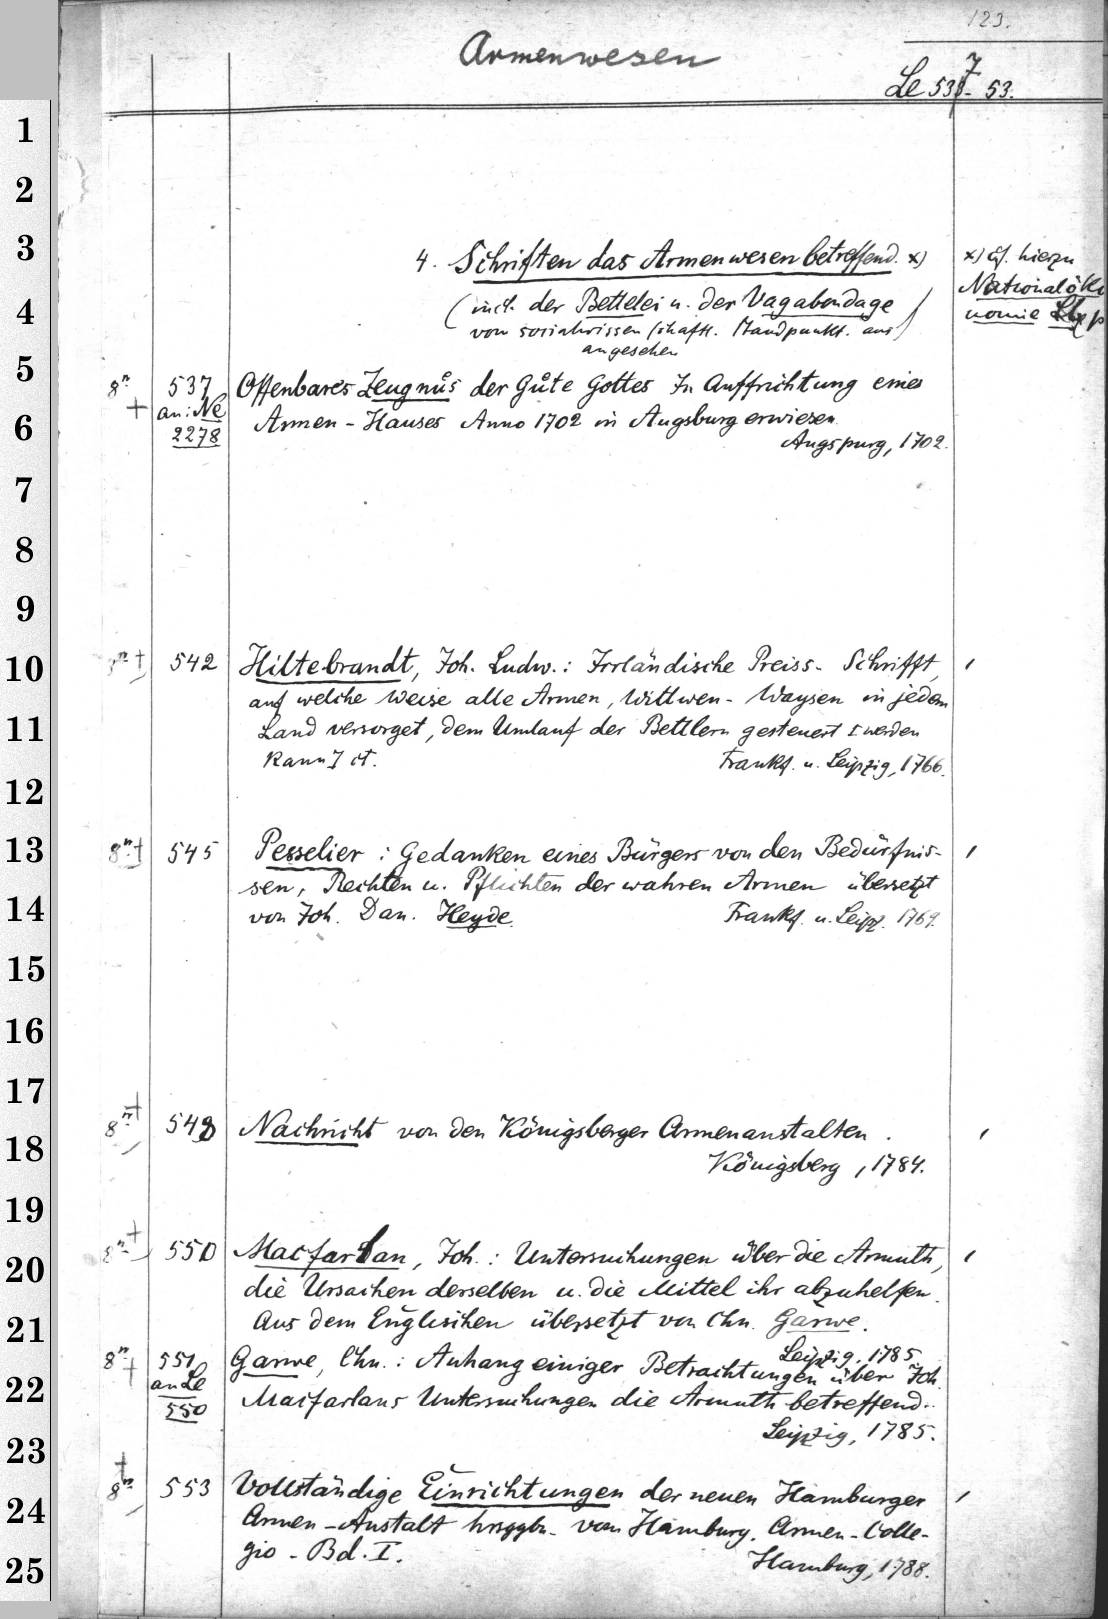 123.
Armenwesen
Le 537 - 53.
1
2
3
4. Schriften das Armenwesen betreffend. x)
x) cf. hierzu
Nationalöko
4
(incl. der Bettelei u. der Vagabondage
nomie
vom socialwissenschaftl. Standpunkt. aus)
angesehen
5
8° 537 Offenbares Zeugnůs der Gůte Gottes In Auffrichtung eines
+ an: Ne Armen-Hauses Anno 1702 in Augsburg erwiesen
6
2278 Augspurg, 1702.
7
8
9
10
8° + 542 Hiltebrandt, Joh. Ludw.: Irrländische Preiss-Schrifft,
auf welche Weise alle Armen, Wittwen- Waysen in jedem
11
Land versorget, dem Umlauf der Bettlern gesteuert [werden
kann] ct. Frankf. u. Leipzig, 1766.
12
13
8° + 545 Pesselier: Gedanken eines Bürgers von den Bedürfnis-
sen, Rechten u. Pflichten der wahren Armen übersetzt
14
von Joh. Dan. Heyde. Frankf. u. Leipz. 1769.
15
16
17
18
8° + 548 Nachricht von den Königsberger Armenanstalten.
Königsberg, 1784.
19
20
8° + 550 Macfarlan, Joh.: Untersuchungen über die Armuth,
die Ursachen derselben u. die Mittel ihr abzuhelfen.
21
Aus dem Englischen übersetzt von Chn. Garve.
Leipzig, 1785
8° + 551 Garve, Chn.: Anhang einiger Betrachtungen über Joh.
22
an Le Macfarlans Untersuchungen die Armuth betreffend.
550 Leipzig, 1785.
23
8° + 553 Vollständige Einrichtungen der neuen Hamburger
24
Armen-Anstalt hrsggbn. vom Hamburg. Armen-Colle-
gio - Bd. I. Hamburg, 1788.
25